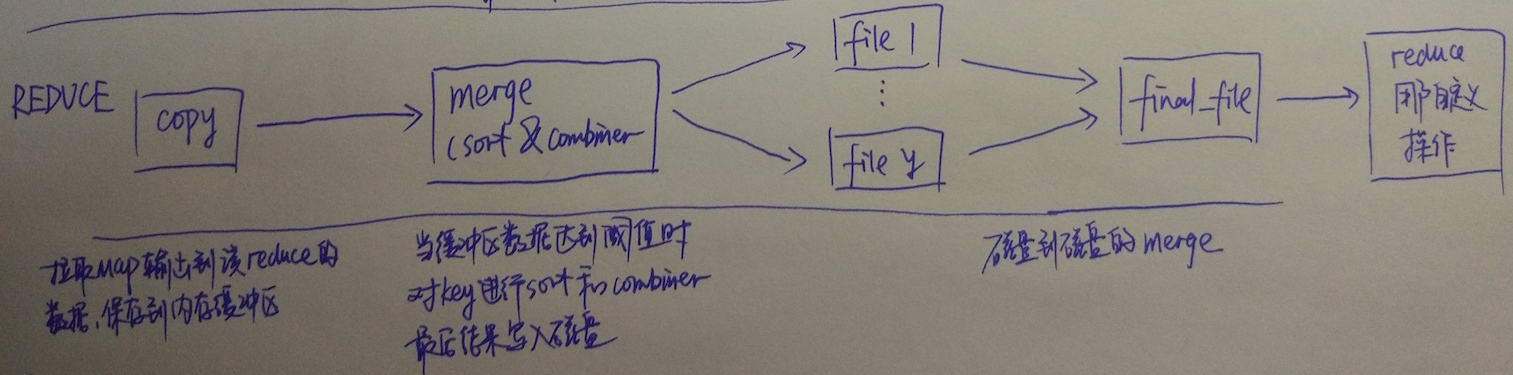 REDUCE
copy
merge
(sort & combiner
file 1
⋮
file y
final_file
reduce
自定义
操作
拉取map输出到该reduce的
数据,保存到内存缓冲区
当缓冲区数据达到阈值时
对key进行sort和combiner
最后结果写入磁盘
磁盘到磁盘的merge